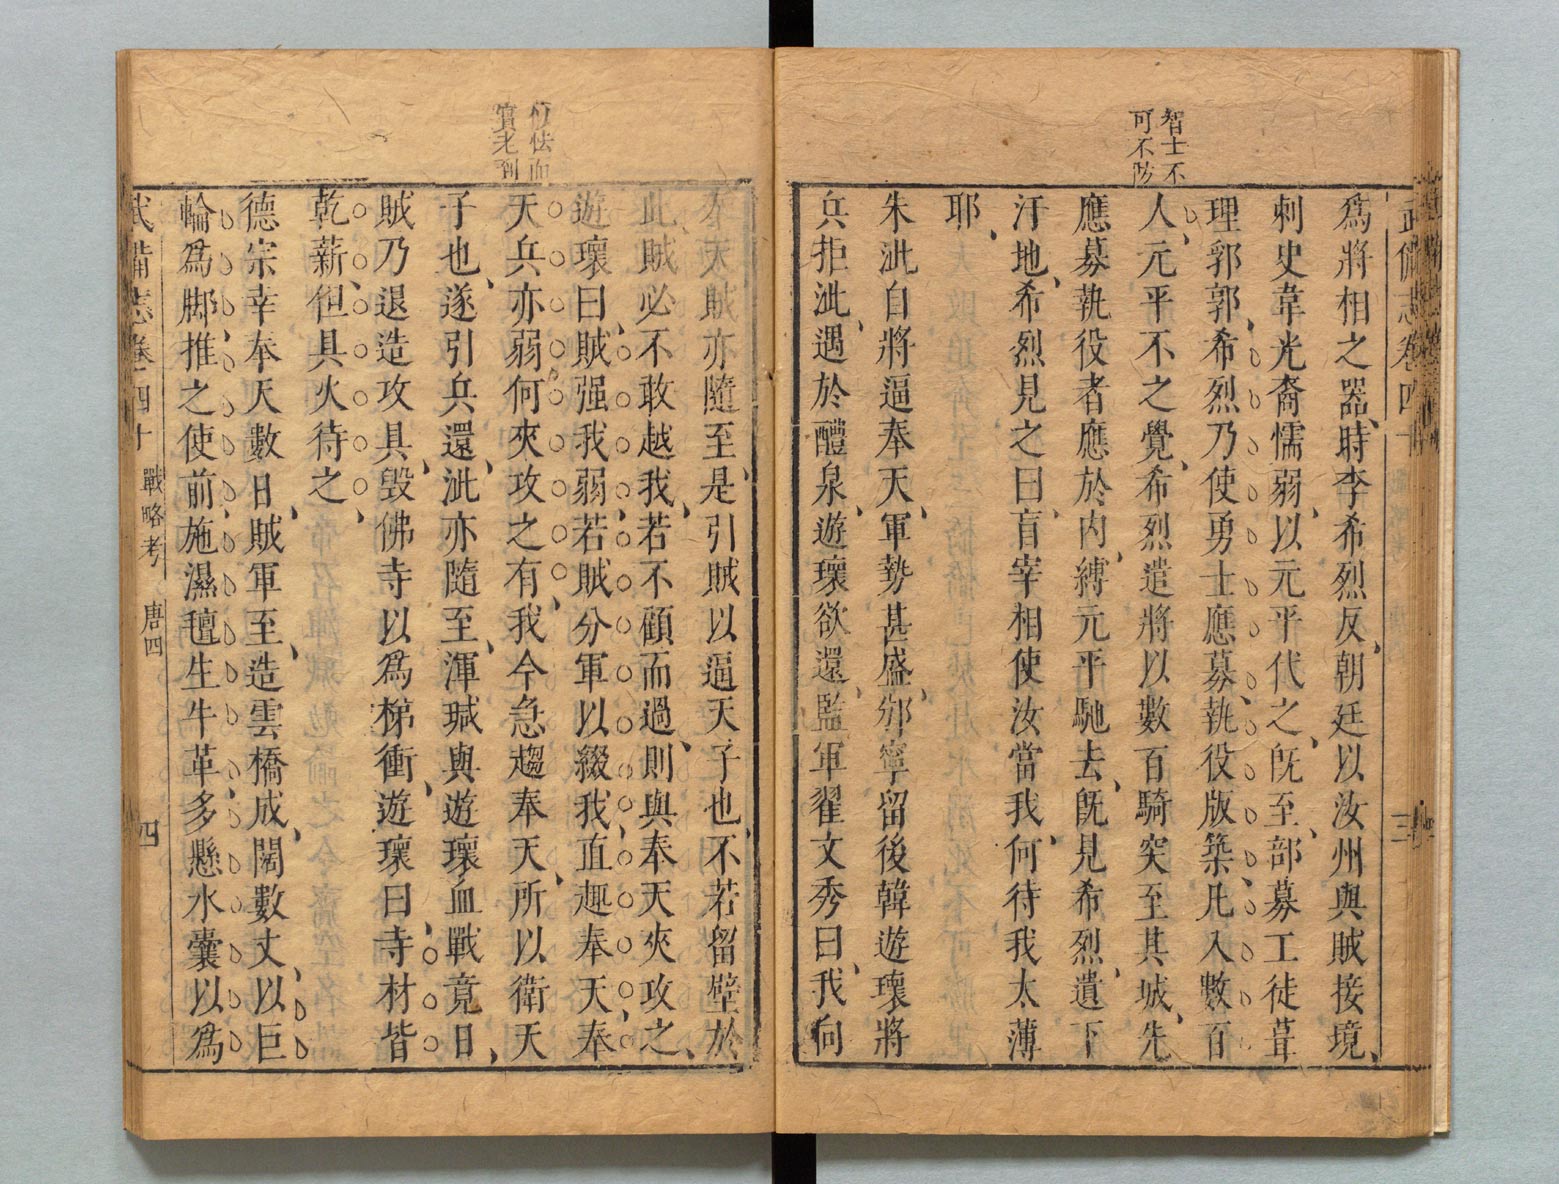 智士不
可不防
武備志卷四十
三
爲將相之器時李希烈反朝廷以汝州與賊接境
刺史韋光裔懦弱以元平代之旣至部募工徒葺
理郛郭希烈乃使勇士應募執役版築凡入數百
人元平不之覺希烈遣將以數百騎突至其城先
應募執役者應於内縛元平馳去旣見希烈遺下
汙地希烈見之曰盲宰相使汝當我何待我太薄
耶
朱泚自將逼奉天軍勢甚盛邠寧留後韓遊瓌將
兵拒泚遇於醴泉遊瓌欲還監軍翟文秀曰我向
奉天賊亦隨至是引賊以逼天子也不若留壁於
此賊必不敢越我若不顧而過則與奉天夾攻之
遊瓌曰賊强我弱若賊分軍以綴我直趣奉天奉
天兵亦弱何夾攻之有我今急趨奉天所以衛天
子也遂引兵還泚亦隨至渾瑊與遊瓌血戰竟日
賊乃退造攻具毁佛寺以爲梯衝遊瓌曰寺材皆
乾薪但具火待之
德宗幸奉天數日賊軍至造雲橋成闊數丈以巨
輪爲脚推之使前施濕氊生牛革多懸水囊以爲
武備志卷四十
戰略考
唐四
四